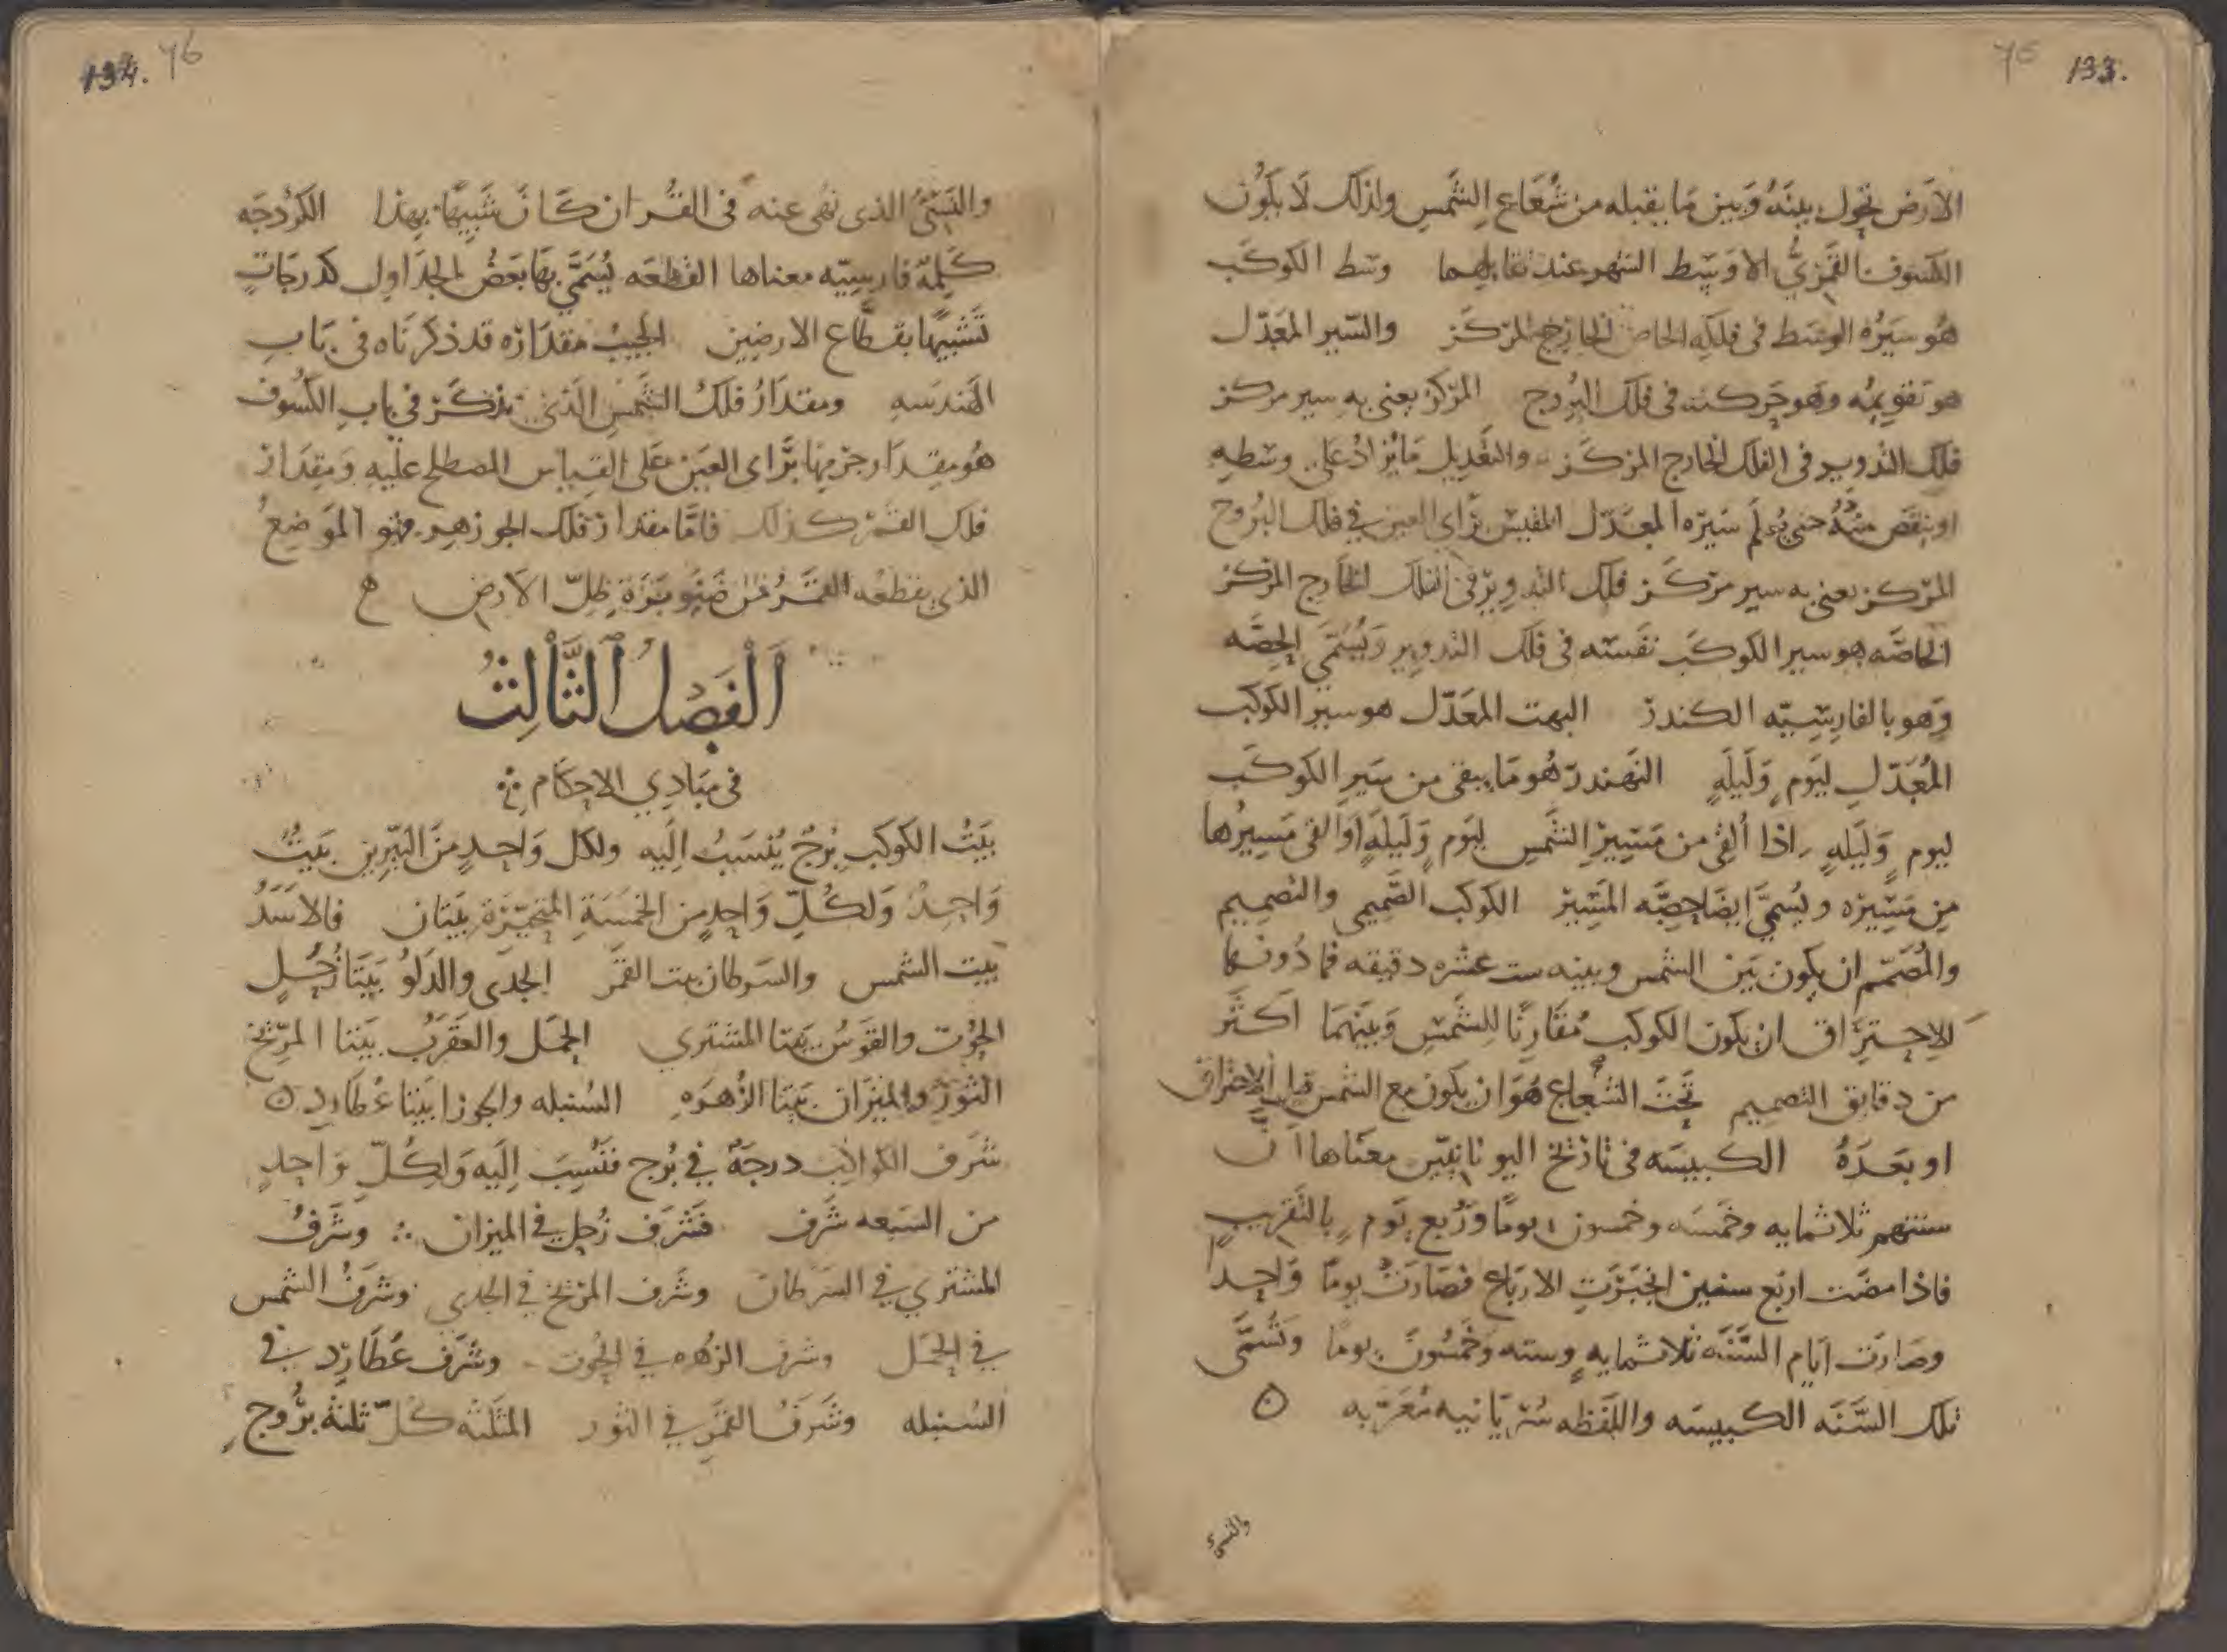 133.
75
الارض تحول بينه وبين ما يقبله من شعاع الشمس ولذلك لا يكون
الكسوف القمري الا وسط الشهر عند تقابلهما وسط الكوكب
هو سيره الوسط في فلكه الخاص الخارج المركز والسير المعدل
هو تقويمه وهو حركته في فلك البروج المركز يعنى به سير مركز
فلك التدوير في الفلك الخارج المركز والتعديل ما يزاد على وسطه
او ينقص منه حتى يعلم سيره المعدل المقيس برأي العين في فلك البروج
المركز يعنى به سير مركز فلك التدوير في الفلك الخارج المركز
الخاصه هو سير الكوكب نفسه في فلك التدوير ويسمى الحصه
وهو بالفارسيه الكندر البهت المعدل هو سير الكوكب
المعدل ليوم وليلة النهندر هو ما يبقى من سير الكوكب
ليوم وليله اذا ألقي من مسير الشمس ليوم وليلة او القي مسيرها
من مسيره ويسمى ايضا حصه المسير الكوكب الصميمي والتصميم
والمصمم ان يكون بين الشمس وبينه ست عشره دقيقه فما دونها
الاحتراق ان يكون الكوكب مقارنا للشمس وبينهما اكثر
من دقايق التصميم تحت الشعاع هو ان يكون مع الشمس قبل الاحتراق
او بعده الكبيسه في تاريخ اليونانيين معناها ان
سنتهم ثلاثمايه وخمسه وخمسون يوما وربع يوم بالتقريب
فاذا مضت اربع سنين انجبرت الارباع فصارت يوما واحدا
وصارت ايام السنه ثلاثمايه وسته وخمسون يوما وتسمى
تلك السنه الكبيسه واللفظه سريانيه معربه ه
والنسيء
134. 76
والنسيء الذى نهى عنه في القران كان شبيها بهذا الكردجه
كلمة فارسيه معناها القطعه يسمى بها بعض الجداول كدرجات
تشبيها بقطاع الارضين الجيب مقداره قد ذكرناه في باب
الهندسه ومقدار فلك الشمس الذي يذكر في باب الكسوف
هو مقدار جرمها برأى العين على القياس المصطلح عليه ومقدار
فلك القمر كذلك فاما مقدار فلك الجوزهر فهو الموضع
الذي يقطعه القمر من صنوبرة ظل الارض ه
الفصل الثالث
في مبادي الاحكام
بيت الكوكب برج ينسب اليه ولكل واحد من النيرين بيت
واحد ولكل واحد من الخمسة المتحيرة بيتان فالاسد
بيت الشمس والسرطان بيت القمر الجدى والدلو بيتا زحل
الحوت والقوس بيتا المشتري الحمل والعقرب بيتا المريخ
الثور والميزان بيتا الزهره السنبله والجوزا بيتا عطارد ه
شرف الكواكب درجة في برج فنسب اليه ولكل واحد
من السبعه شرف فشرف زحل في الميزان وشرف
المشتري في السرطان وشرف المريخ في الجدي وشرف الشمس
في الحمل وشرف الزهره في الحوت وشرف عطارد في
السنبله وشرف القمر في الثور المثلثه كل ثلثة بروج